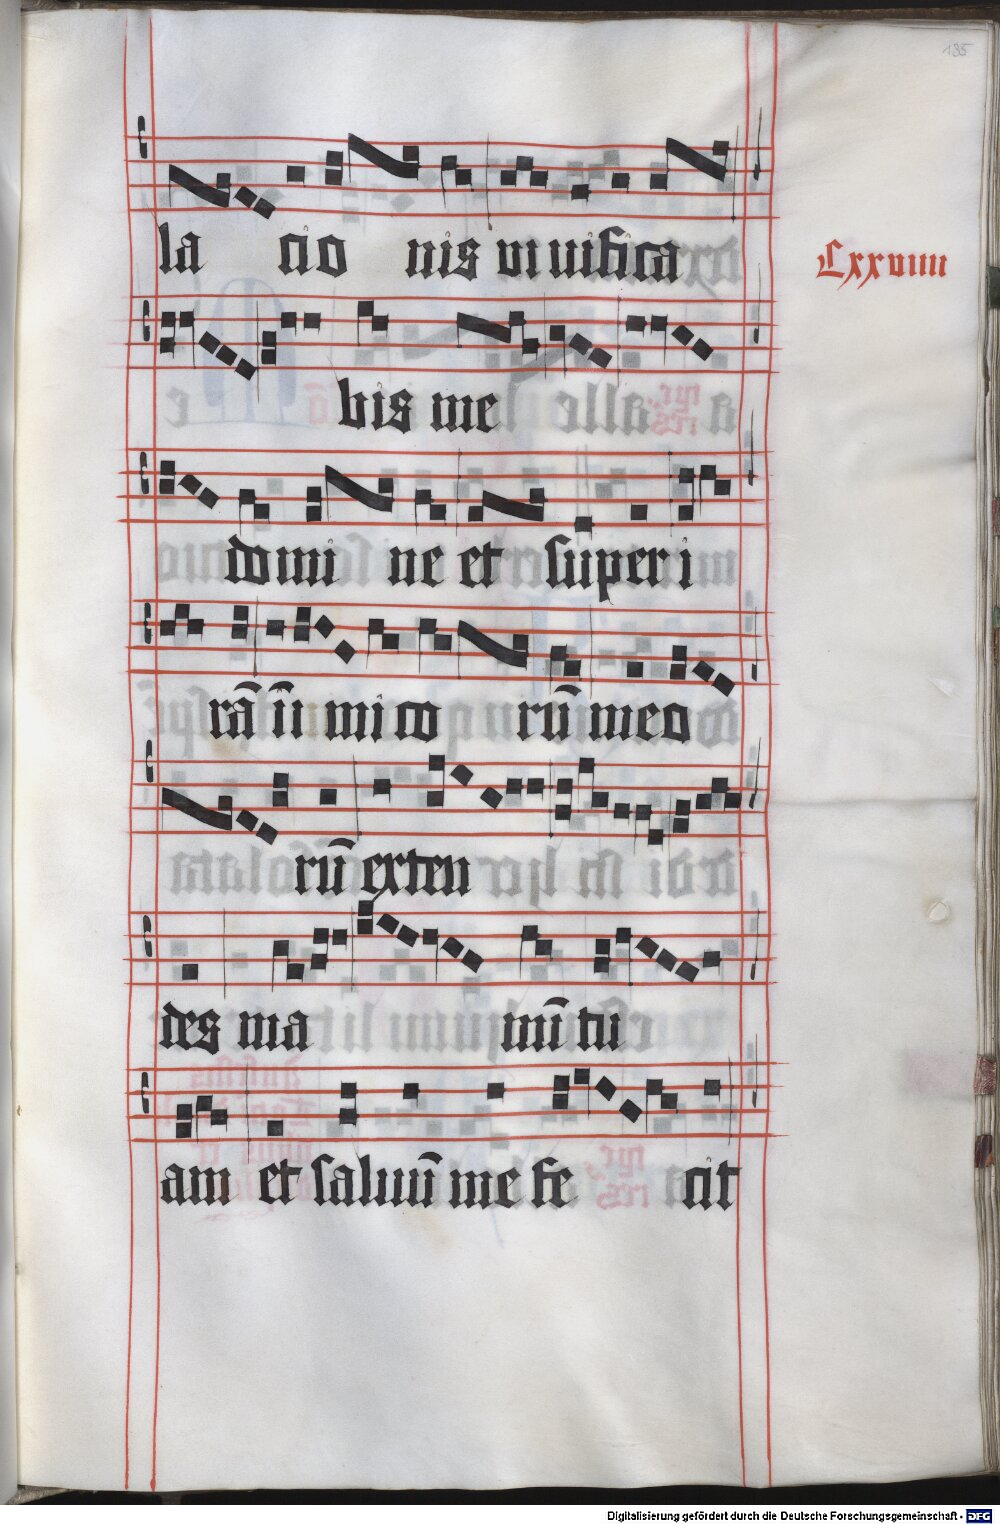 185
la cio nis vi uifica
Cxxviiii
bis me
domi ne et super i
rā īi mi co rū meo
rū exten
des ma nū tu
am et saluū me fe cit
Digitalisierung gefördert durch die Deutsche Forschungsgemeinschaft - DFG